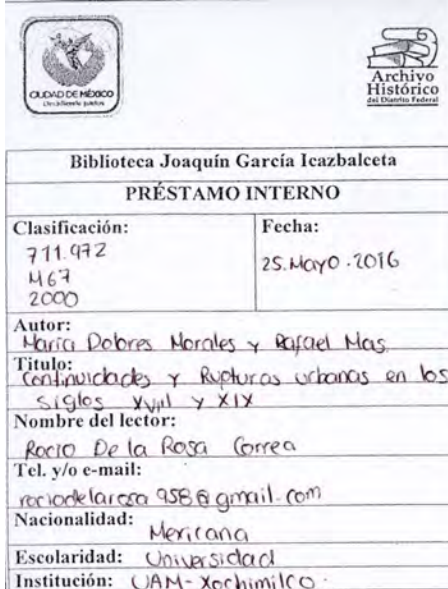 CIUDAD DE MÉXICO
Archivo
Histórico
del Distrito Federal
Biblioteca Joaquín García Icazbalceta
PRÉSTAMO INTERNO
Clasificación:
711.972
M67
2000
Fecha:
25.Mayo.2016
Autor:
María Dolores Morales y Rafael Mas
Titulo:
Continuidades y Rupturas urbanas en los
siglos XVIII y XIX
Nombre del lector:
Rocio De la Rosa Correa
Tel. y/o e-mail:
rociodelarosa958@gmail.com
Nacionalidad:
Mexicana
Escolaridad: Universidad
Institución: UAM-Xochimilco.